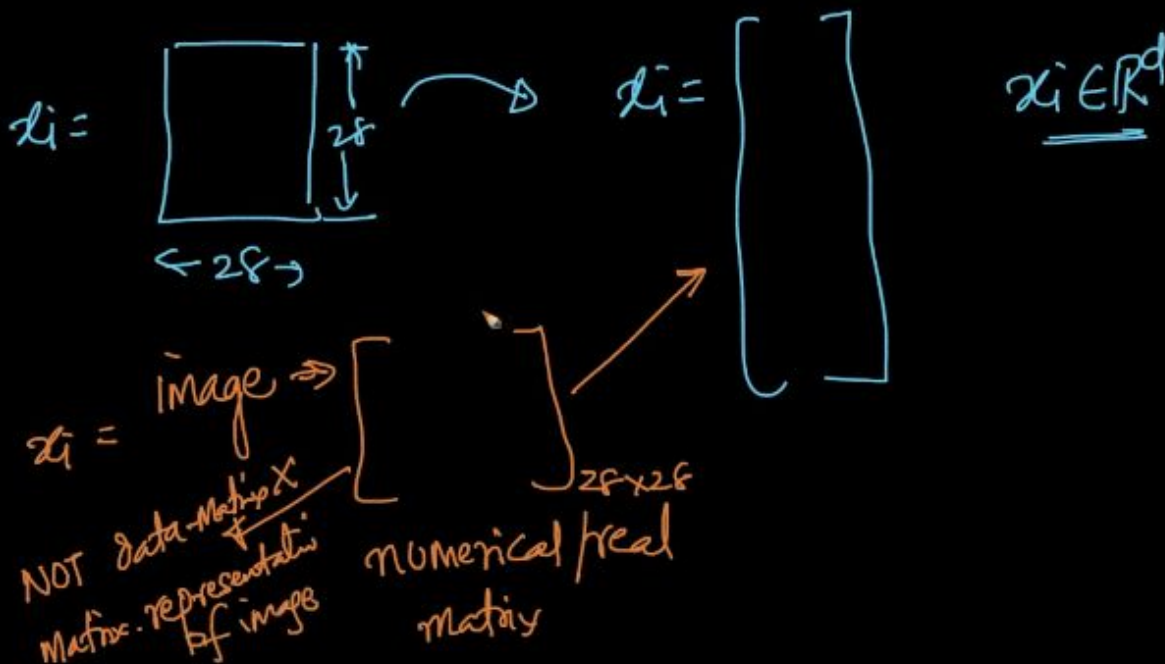 xi =
28
← 28 →
xi =
xi ∈ ℝᵈ
xi = image ⇒
28×28
NOT data-matrix X
Matrix representati
of image
numerical/real
matrix